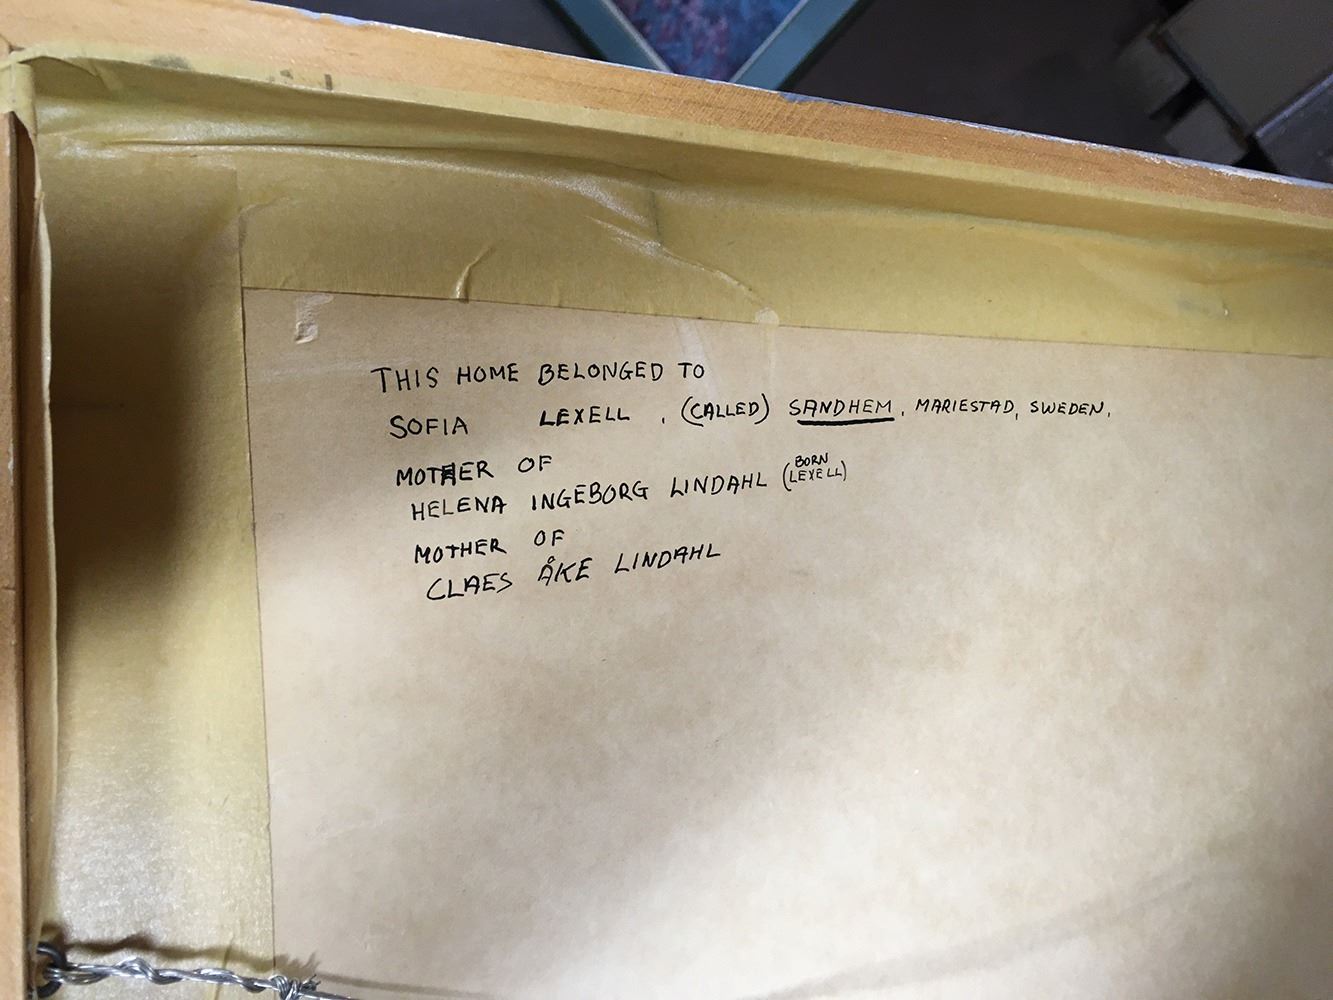 THIS HOME BELONGED TO
SOFIA LEXELL, (CALLED) SANDHEM, MARIESTAD, SWEDEN,
MOTHER OF
HELENA INGEBORG LINDAHL (BORN LEXELL)
MOTHER OF
CLAES ÅKE LINDAHL